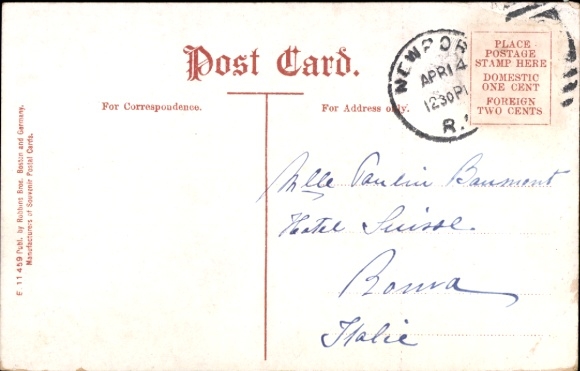 Post Card.
For Correspondence.
For Address only.
NEWPOR
APR 14
1230P
R.
PLACE
POSTAGE
STAMP HERE
DOMESTIC
ONE CENT
FOREIGN
TWO CENTS
Mlle Paulin Baumont
Hotel Suisse.
Roma
Italie
E 11459 Publ. by Robbins Bros. Boston and Germany.
Manufacturers of Souvenir Postal Cards.